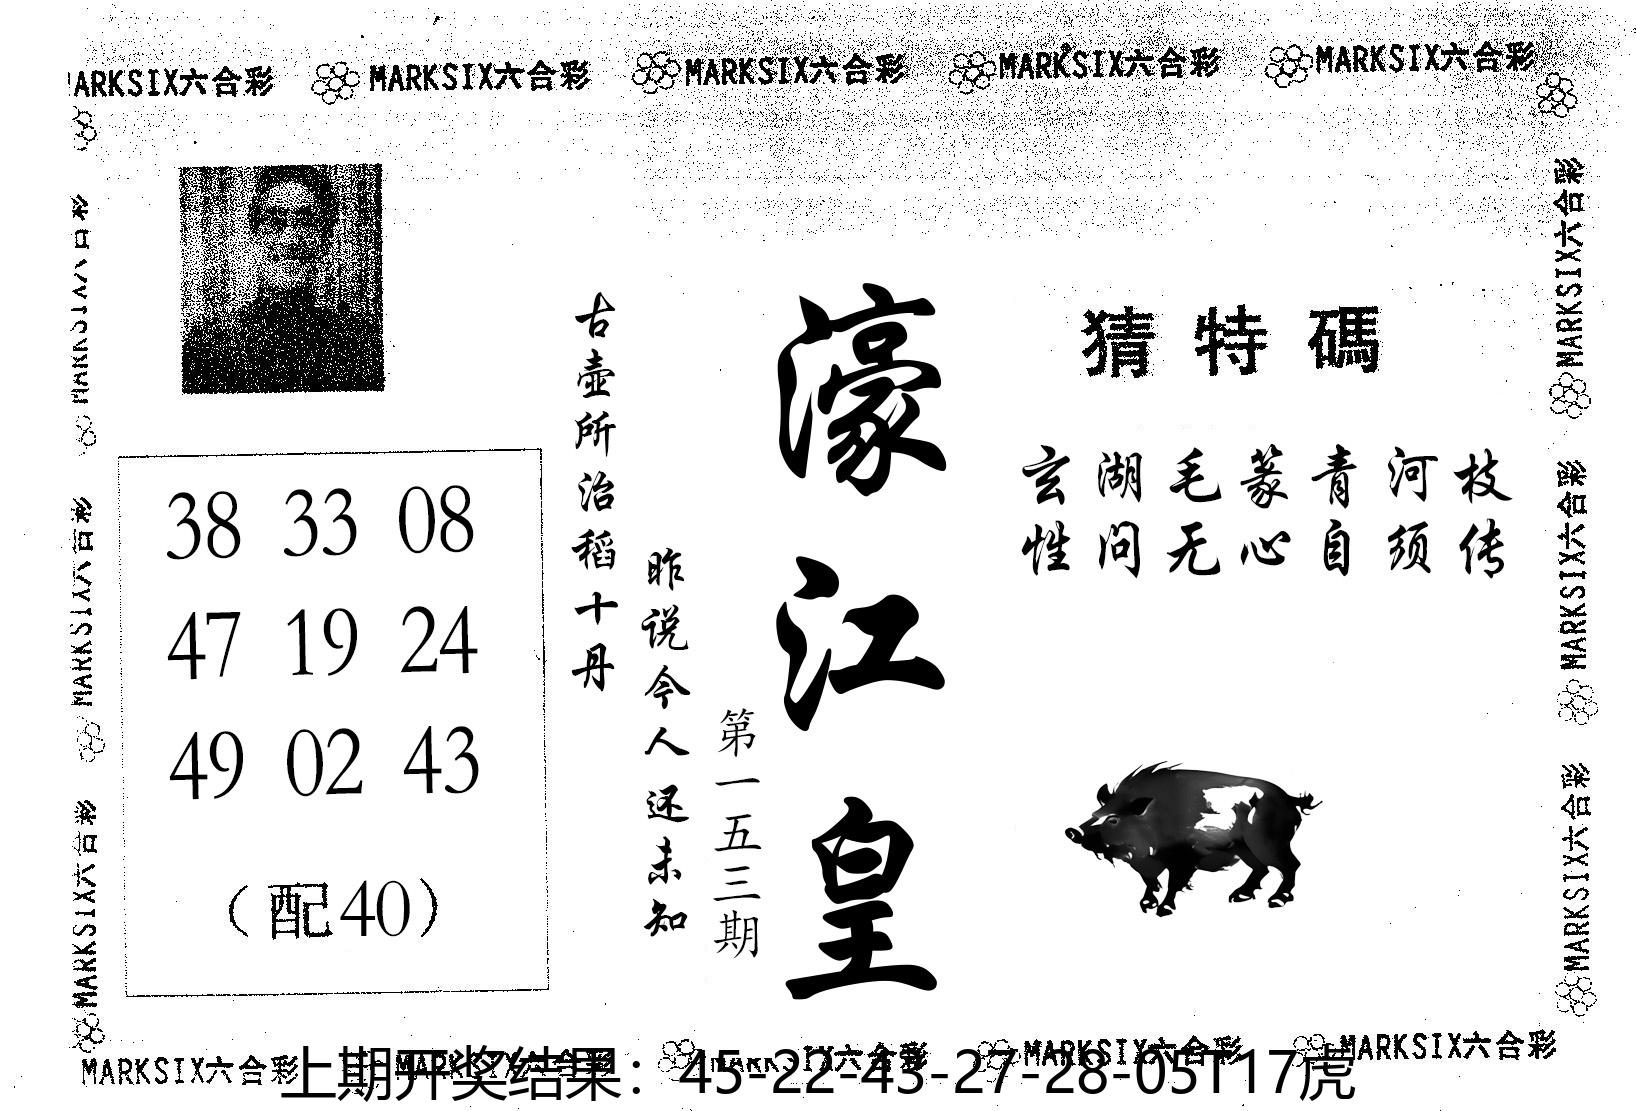 MARKSIX六合彩 MARKSIX六合彩 MARKSIX六合彩 MARKSIX六合彩 MARKSIX六合彩
猜特碼
玄湖毛篆青河枝
性问无心自须传
濠江皇
第一五三期
古壶所治稻十丹
昨说今人还未知
38 33 08
47 19 24
49 02 43
（配40）
MARKSIX六合彩
MARKSIX六合彩
MARKSIX六合彩
MARKSIX六合彩
MARKSIX六合彩
MARKSIX六合彩
MARKSIX六合彩 MARKSIX六合彩 MARKSIX六合彩 MARKSIX六合彩 MARKSIX六合彩
上期开奖结果：45-22-43-27-28-05T17虎